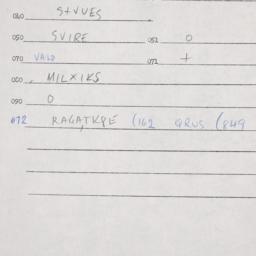 040 S+VVES
050 SVIRE 052 0
070 VALD 072 +
080 MILXIKS
090 0
072 RAGATKPE (162 QRUS (849